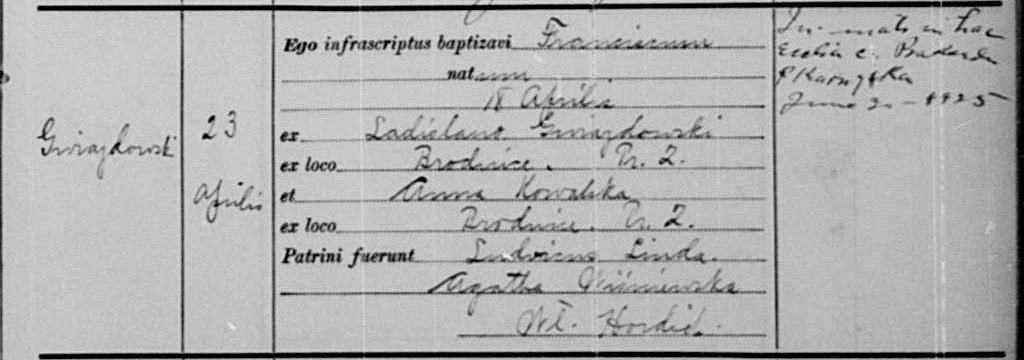 Gwiazdowski
23
Aprilis
Ego infrascriptus baptizavi Franciscum
natum
18 Aprilis
ex Ladislaus Gwiazdowski
ex loco Brodnice. Pr. Z.
et Anna Kowalska
ex loco Brodnice. Pr. Z.
Patrini fuerunt Ludvicus Linda.
Agatha Wiśniewska
Wł.
in hac
Ecclia c.
June 2 - 1925